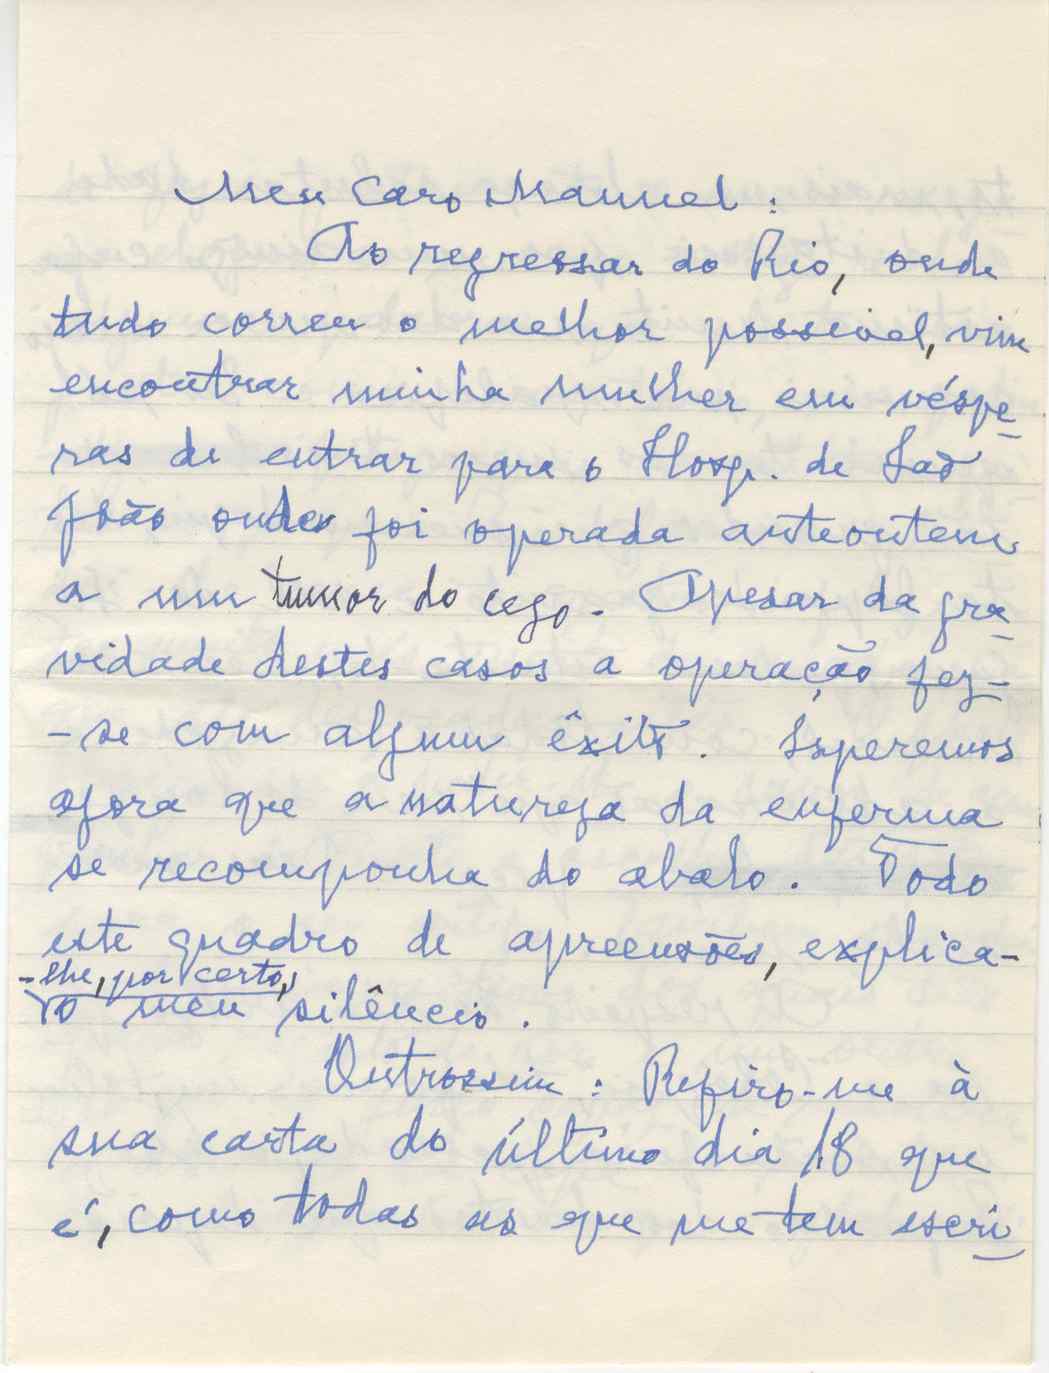 Meu Caro Manuel:
Ao regressar do Rio, onde
tudo correu o melhor possivel, vim
encontrar minha mulher em véspe-
ras de entrar para o Hosp. de São
João onde foi operada anteontem
a um tumor do cego. Apesar da gra-
vidade destes casos a operação fez-
-se com algum êxito. Esperemos
agora que a natureza da enferma
se recomponha do abalo. Todo
este quadro de apreensões, explica-
-lhe, por certo,
o meu silêncio.
Outrossim: Refiro-me à
sua carta do último dia 18 que
é, como todas as que me tem escri-